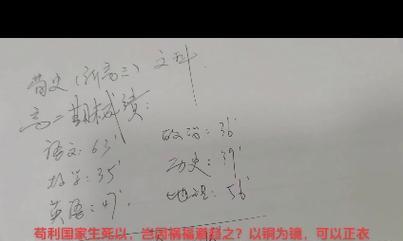 (新高三) 文科
高二期末成绩:
语文: 63'
数学: 35'
英语: 47'
政治: 36'
历史: 39'
地理: 56'
苟利国家生死以,岂因祸福避趋之?以铜为镜,可以正衣